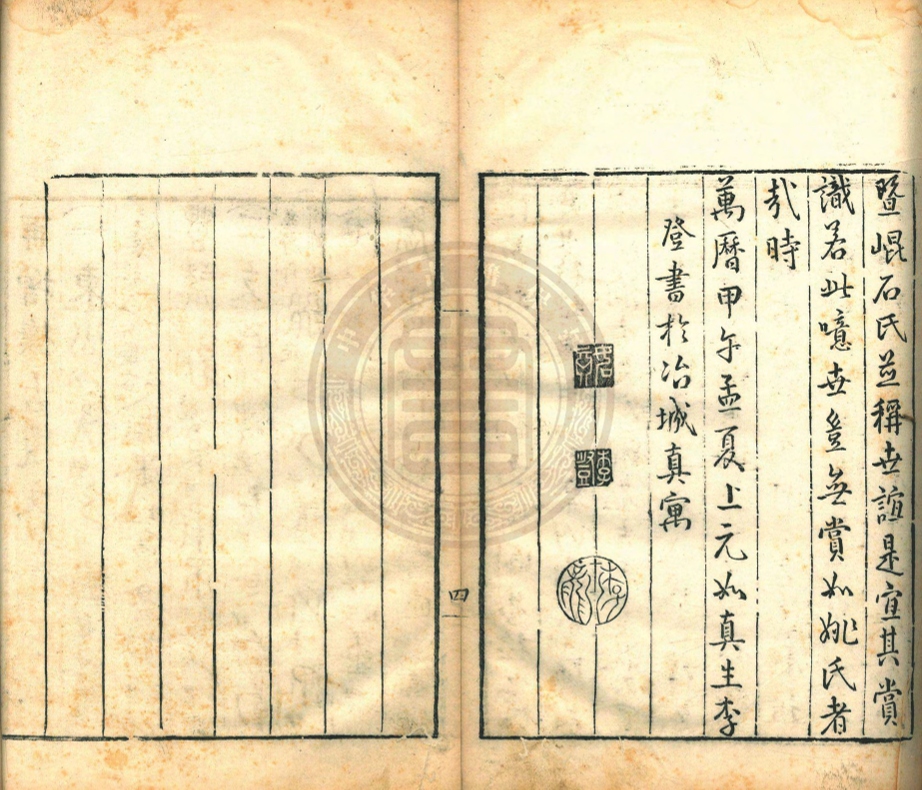 暨崐石氏並稱世誼是宜其賞
識若此噫世豈無賞如姚氏者
哉時
萬曆甲午孟夏上元如真生李
登書於冶城真寓
李登
四